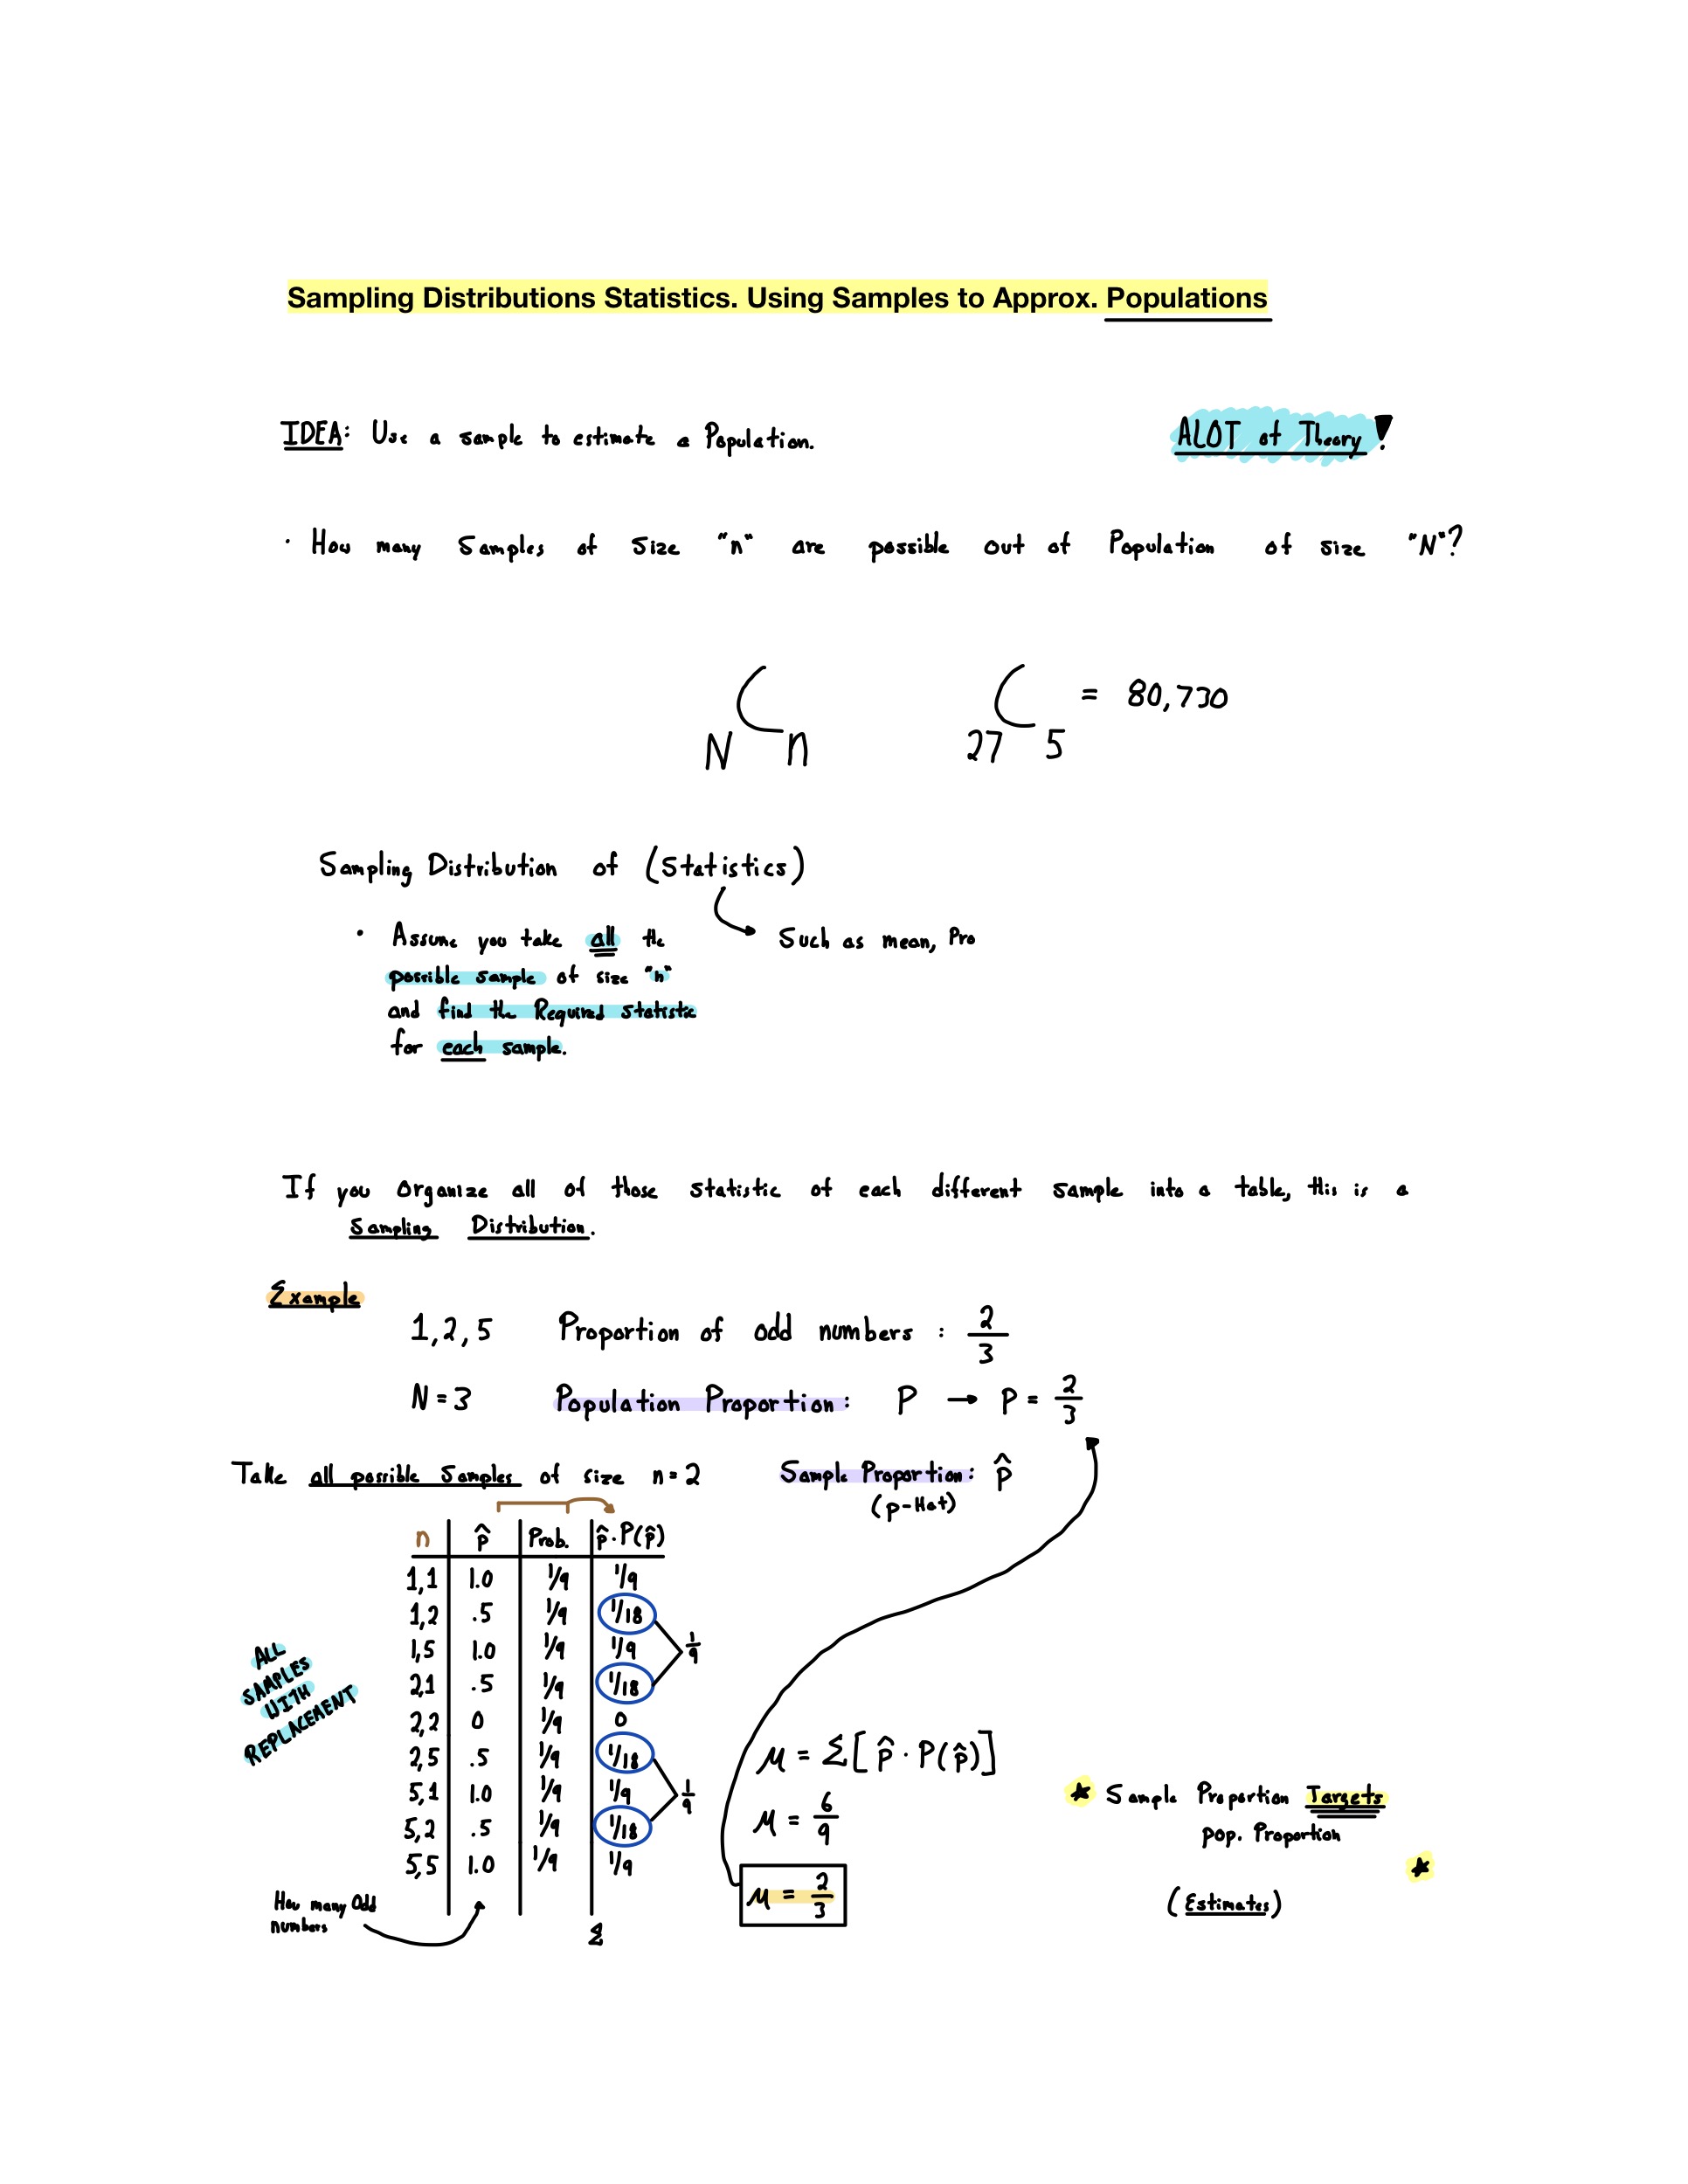 Sampling Distributions Statistics. Using Samples to Approx. Populations
IDEA: Use a sample to estimate a Population.
ALOT of Theory!
· How many Samples of Size "n" are possible out of Population of size "N"?
N C n
27 C 5 = 80,730
Sampling Distribution of (Statistics)
Such as mean, Pro
· Assume you take all the
possible sample of size "n"
and find the Required Statistic
for each sample.
If you organize all of those statistic of each different sample into a table, this is a
Sampling Distribution.
Example
1, 2, 5 Proportion of odd numbers : 2/3
N = 3 Population Proportion: P → P = 2/3
Take all possible Samples of size n = 2
Sample Proportion: p̂
(p-Hat)
n | p̂ | Prob. | p̂ · P(p̂)
1,1 | 1.0 | 1/9 | 1/9
1,2 | .5 | 1/9 | 1/18
1,5 | 1.0 | 1/9 | 1/9
2,1 | .5 | 1/9 | 1/18
1/9
2,2 | 0 | 1/9 | 0
2,5 | .5 | 1/9 | 1/18
5,1 | 1.0 | 1/9 | 1/9
5,2 | .5 | 1/9 | 1/18
1/9
5,5 | 1.0 | 1/9 | 1/9
Σ
ALL
SAMPLES
WITH
REPLACEMENT
How many Odd
numbers
μ = Σ[p̂ · P(p̂)]
μ = 6/9
μ = 2/3
★ Sample Proportion Targets
pop. Proportion ★
(Estimates)